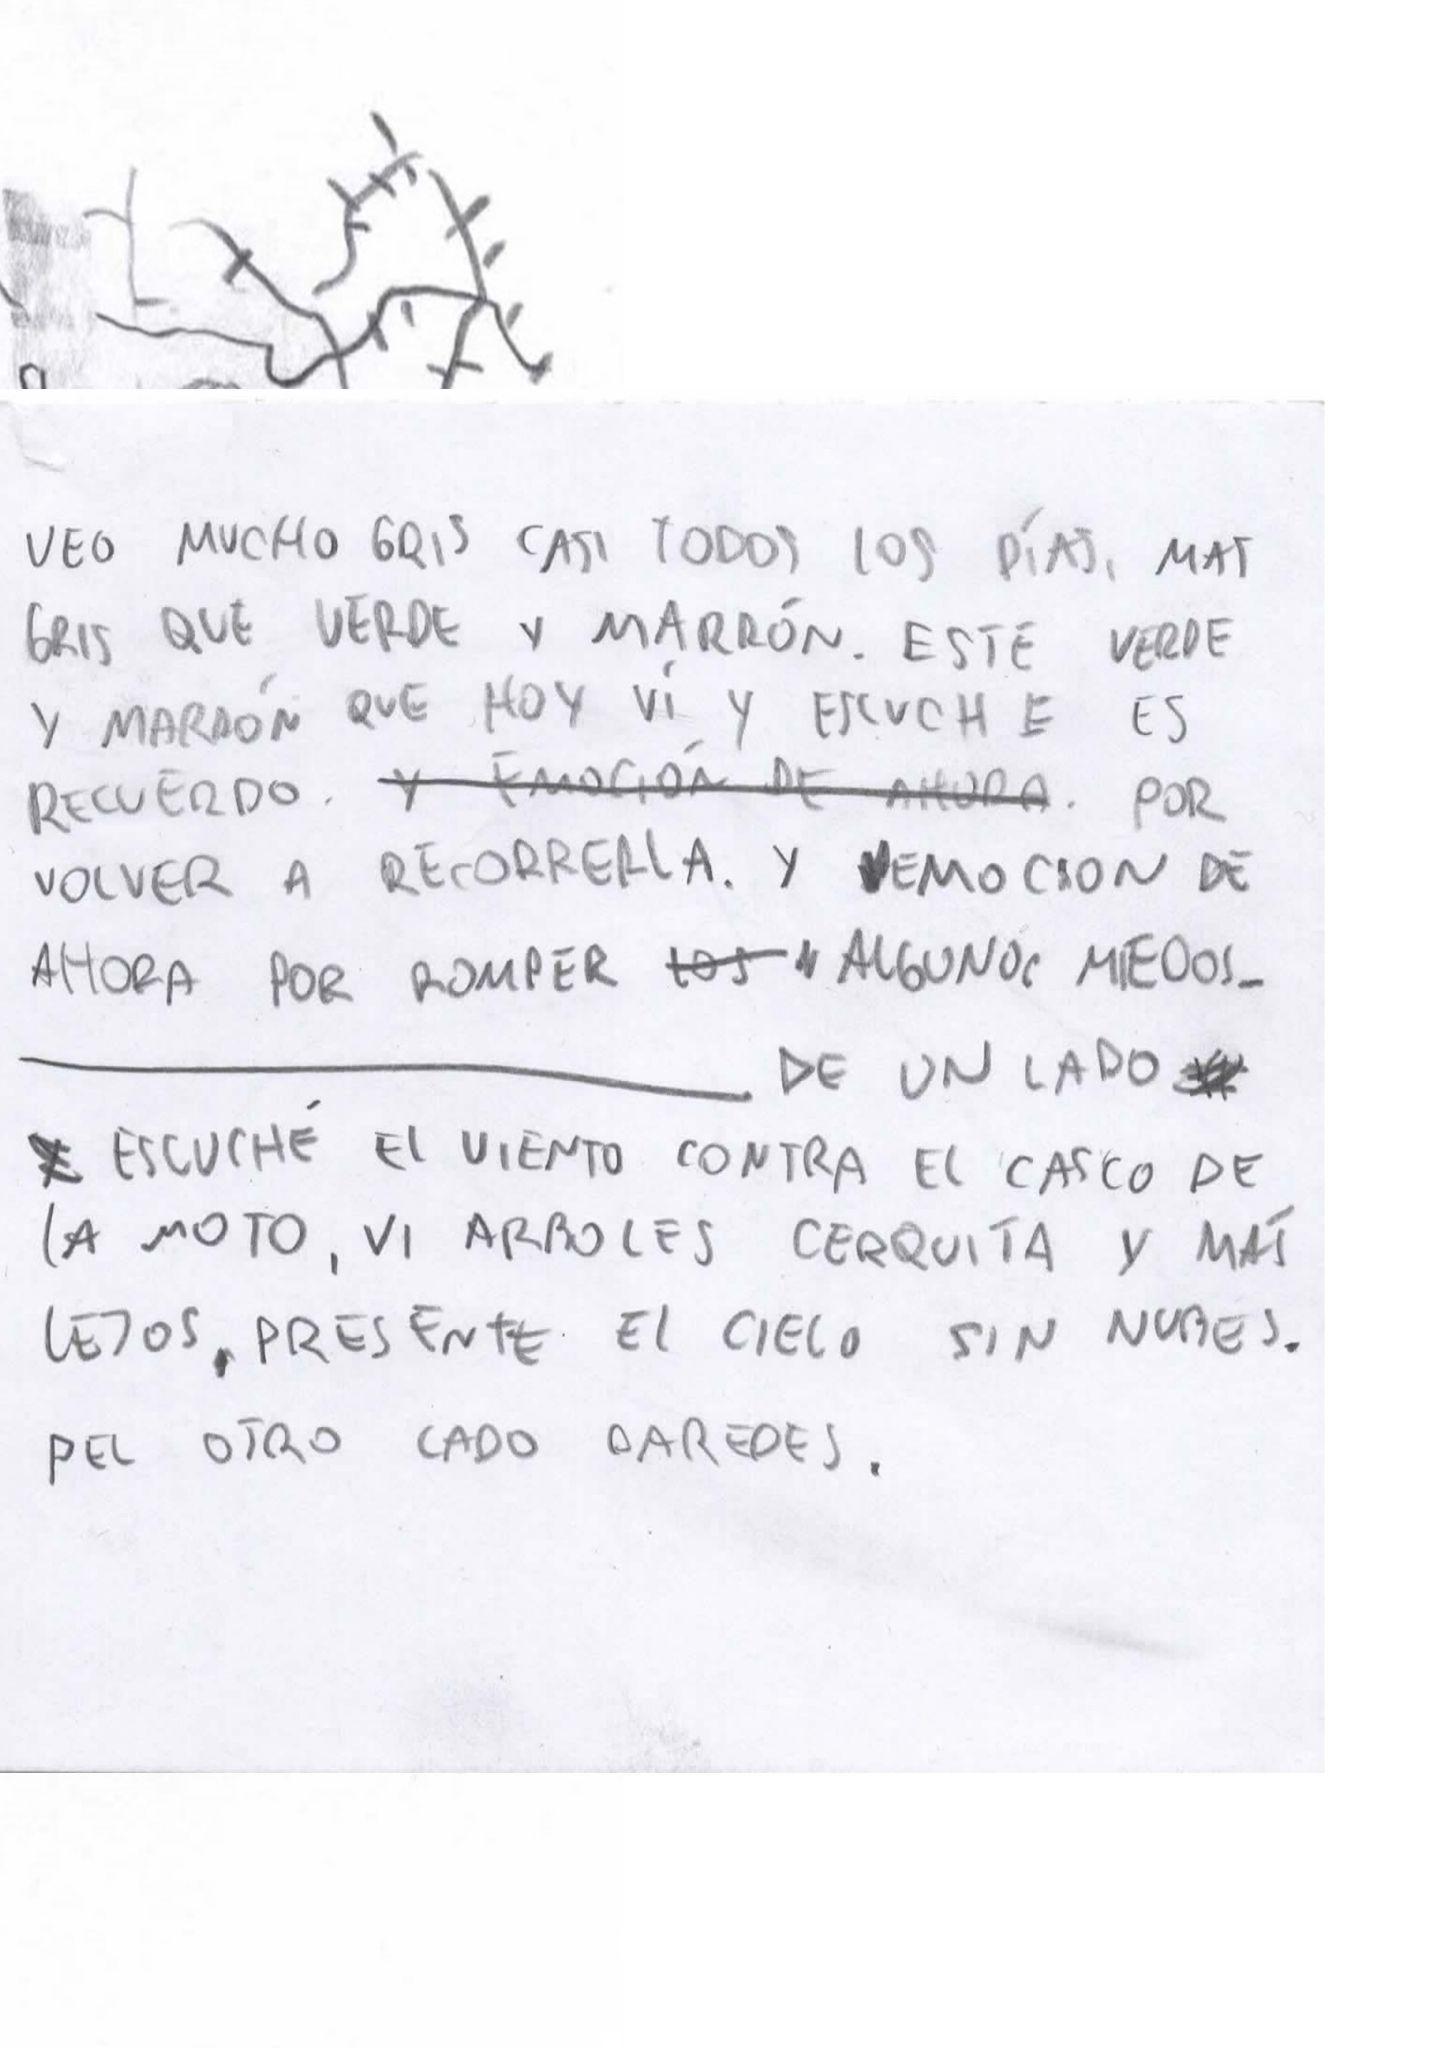 VEO MUCHO GRIS CASI TODOS LOS DÍAS, MAS
GRIS QUE VERDE Y MARRÓN. ESTE VERDE
Y MARRÓN QUE HOY VÍ Y ESCUCHE ES
RECUERDO. Y EMOCIÓN DE AHORA. POR
VOLVER A RECORRERLA. Y EMOCION DE
AHORA POR ROMPER LOS ALGUNOS MIEDOS_
DE UN LADO
ESCUCHÉ EL VIENTO CONTRA EL CASCO DE
LA MOTO, VI ARBOLES CERQUITA Y MÁS
LEJOS, PRESENTE EL CIELO SIN NUBES.
DEL OTRO LADO PAREDES.